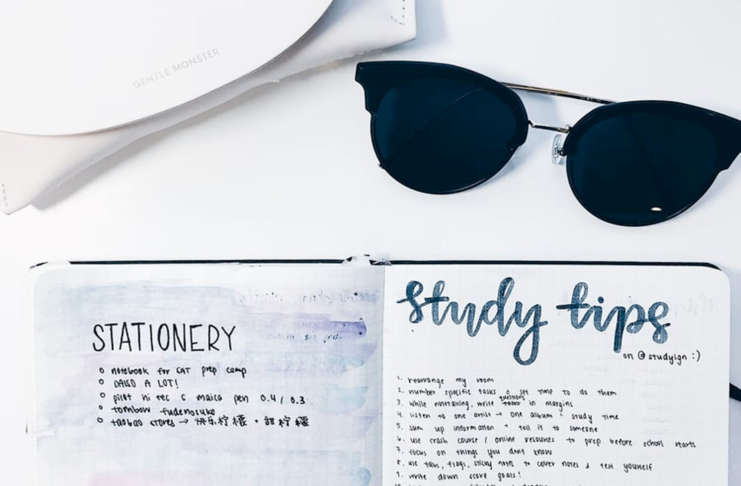 GENTLE MONSTER
STATIONERY
notebook for SAT prep camp
DAISO A LOT!
pilot hi tec c maica pen 0.4 / 0.3
tombow fudenosuke
taobao stores → 快乐柠檬 +
study tips
on @studyign :)
1. rearrange my room
2. number specific tasks + set time to do them
3. while notetaking, write questions in margins
4. listen to one artist → one album + study time
5. sum up information + tell it to someone
6. use crash course / online resources to prep before school starts
7. focus on things you dont know
8. use tabs, flags, sticky notes to cover notes & test yourself
9. write down score goals!